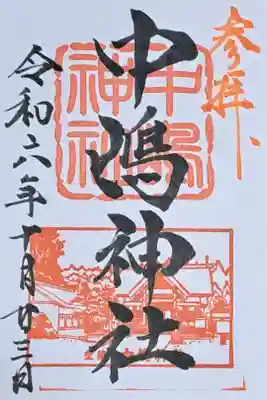 参拝
中嶋神社
中嶋神社
令和六年十月廿三日